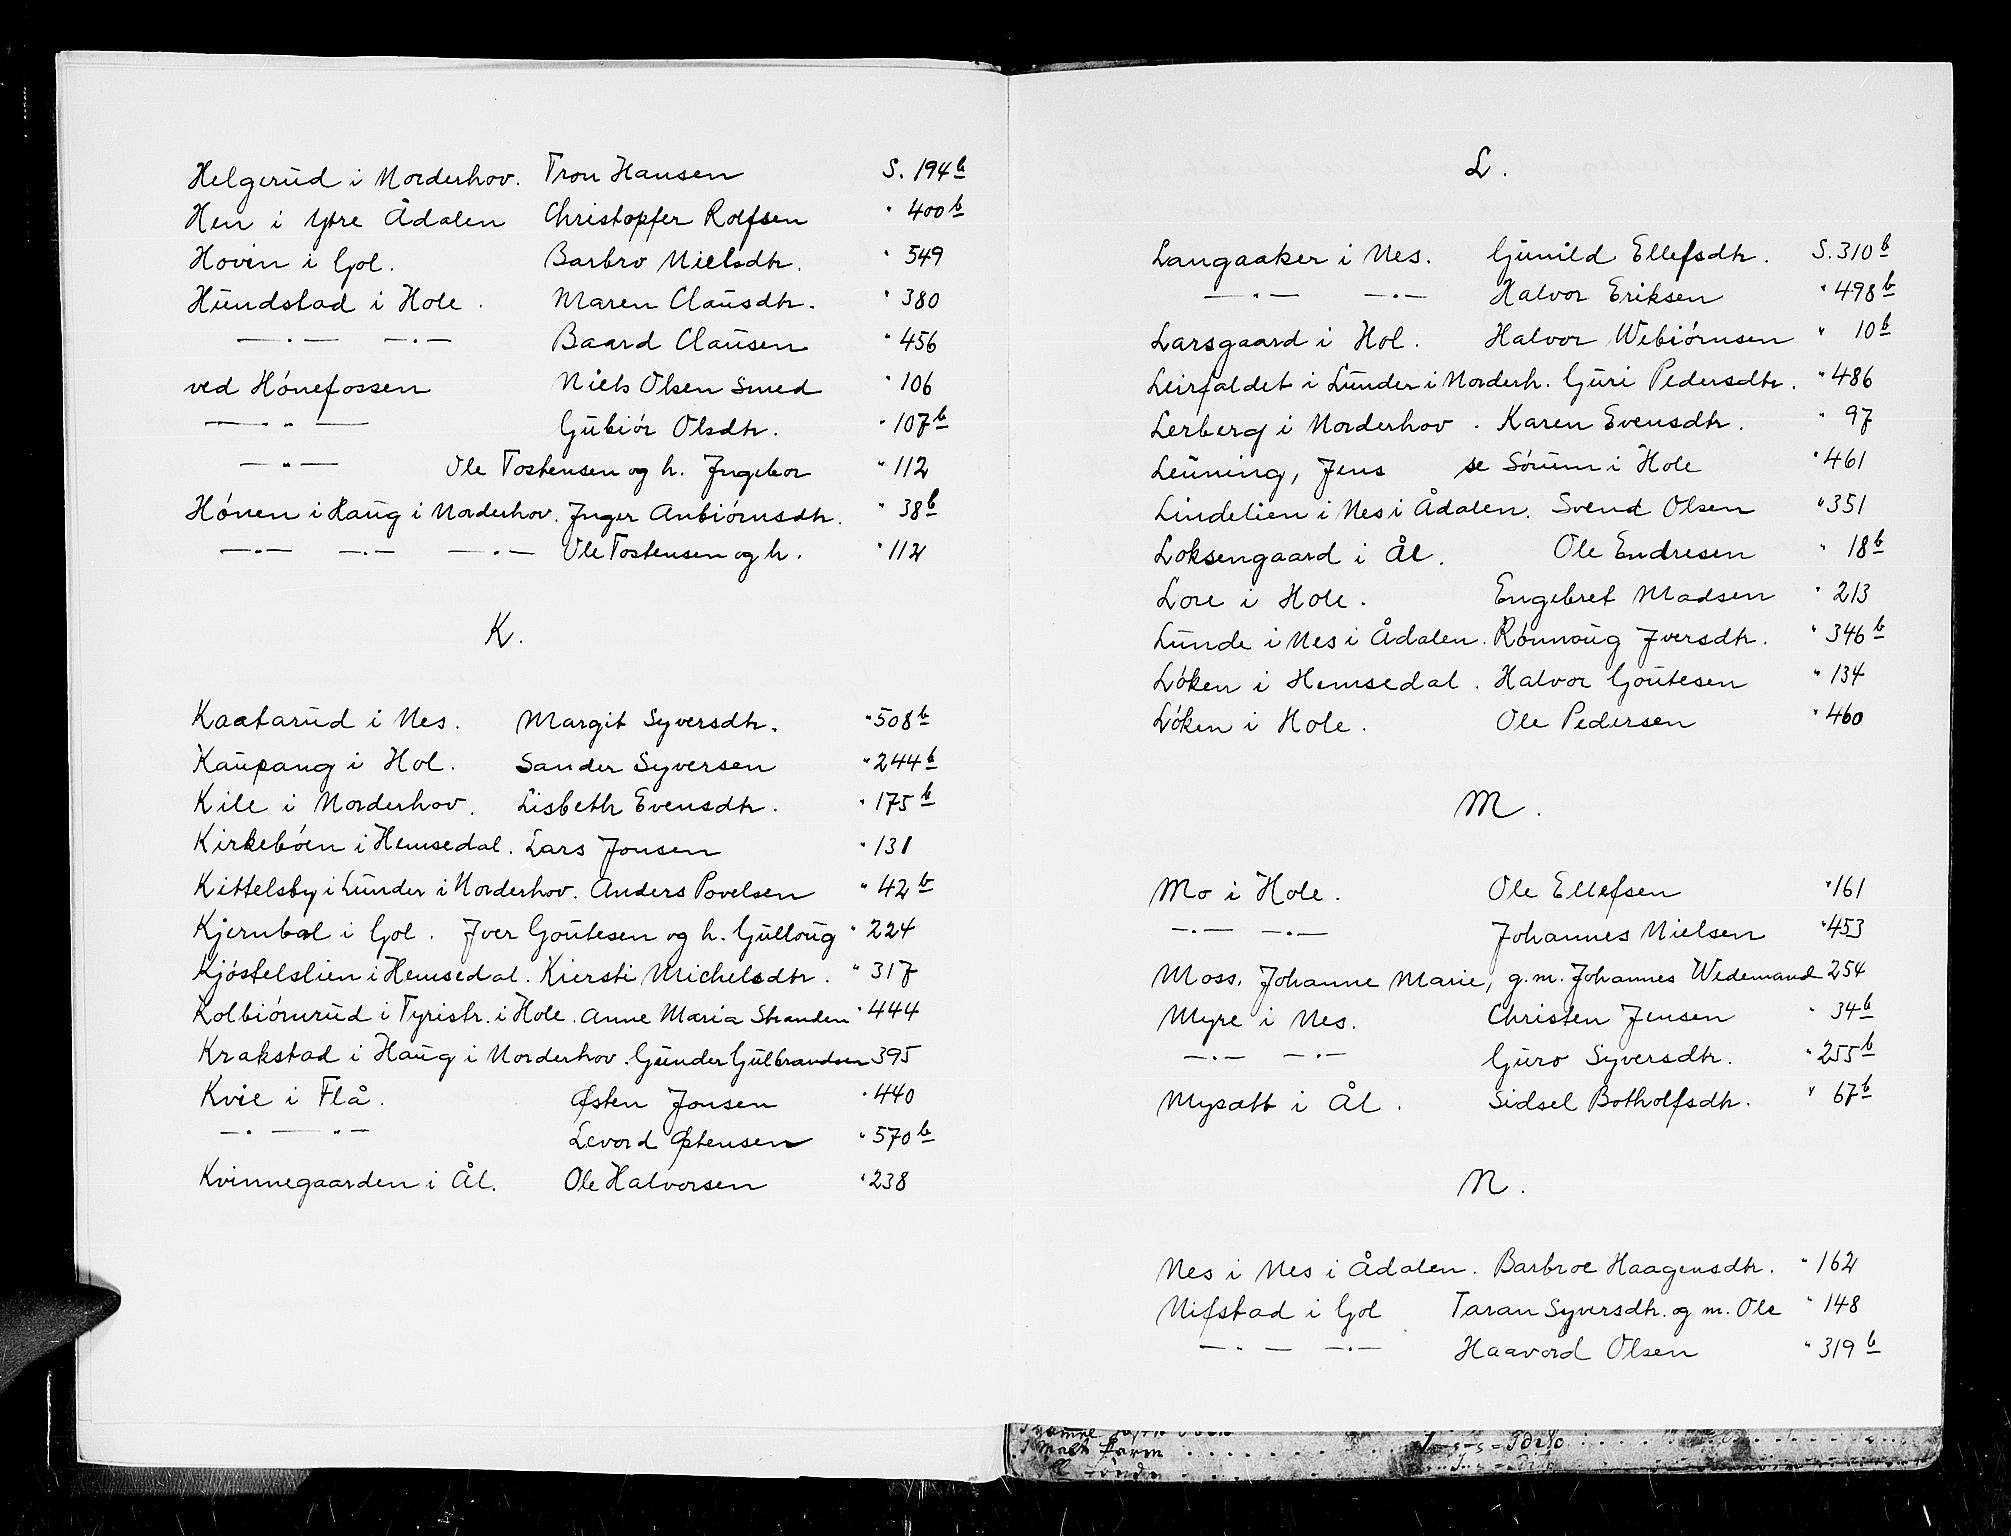 Helgerud i Norderhov. Tron Hansen S. 194 b
Hen i Ytre Ådalen Christopfer Rolfsen " 400 b
Hovin i Gol. Barbro Nielsdtr. " 549
Hundstad i Hole. Maren Clausdtr. " 380
— " — — " — Baard Clausen " 456
ved Hönefossen Niels Olsen Smed " 106
— " — Gubiör Olsdtr. " 107 b
— " — Ole Tostensen og h. Jngebor " 112
Hönen i Haug i Norderhov. Jnger Anbiörnsdtr. " 38 b
— " — — " — — " — Ole Tostensen og h. " 112
K.
Kaatarud i Nes. Margit Syversdtr. " 508 b
Kaupang i Hol. Sander Syversen " 244 b
Kile i Norderhov. Lisbeth Evensdtr. " 175 b
Kirkeböen i Hemsedal. Lars Jonsen " 131
Kittelsby i Lunder i Norderhov. Anders Povelsen " 42 b
Kjernbal i Gol. Jver Goutesen og h. Gulloug " 224
Kjöstelslien i Hemsedal. Kiersti Michelsdtr. " 317
Kolbiörnrud i Tyristr. i Hole. Anne Maria Stranden " 444
Krakstad i Haug i Norderhov. Gunder Gulbrandsen 395
Kvie i Flå. Østen Jonsen " 440
— " — — " — Levord Østensen " 570 b
Kvinnegaarden i Ål. Ole Halvorsen " 238
L.
Langaaker i Nes. Gunild Ellefsdtr. S. 310 b
— " — — " — Halvor Eriksen " 498 b
Larsgaard i Hol. Halvor Webiörnsen " 10 b
Leirfaldet i Lunder i Norderh. Guri Pedersdtr. " 486
Lerberg i Norderhov. Karen Evensdtr. " 97
Leuning, Jens se Sörum i Hole " 461
Lindelien i Nes i Ådalen. Svend Olsen " 351
Loksengaard i Ål. Ole Endresen " 18 b
Lore i Hole. Engebret Madsen " 213
Lunde i Nes i Ådalen. Rönnoug Jversdtr. " 346 b
Löken i Hemsedal. Halvor Goutesen " 134
Löken i Hole. Ole Pedersen " 460
M.
Mo i Hole. Ole Ellefsen " 161
— " — — " — Johannes Nielsen " 453
Moss, Johanne Marie, g. m. Johannes Wedemand 254
Myre i Nes. Christen Jensen " 34 b
— " — — " — Guro Syversdtr. " 255 b
Mysætt i Ål. Sidsel Botholfsdtr. " 67 b
N.
Nes i Nes i Ådalen. Barbroe Haagensdtr. " 162
Nifstad i Gol Taran Syversdtr. og m. Ole " 148
— " — — " — Haavord Olsen " 319 b